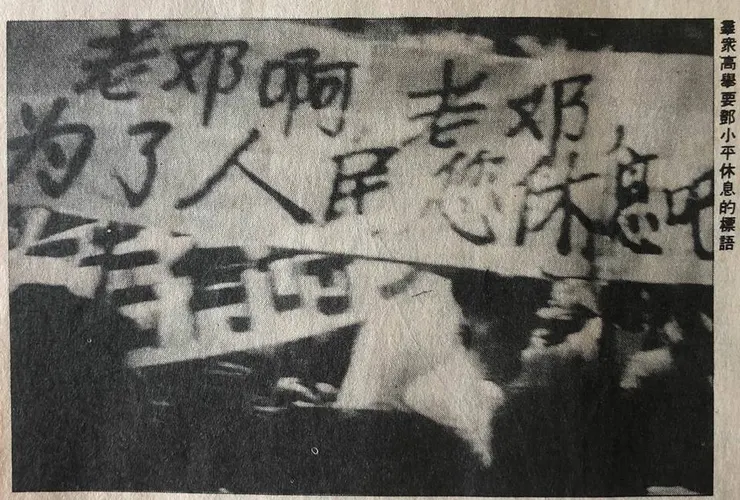 老邓啊 老邓,
为了人民 您休息吧
羣衆高舉要鄧小平休息的標語